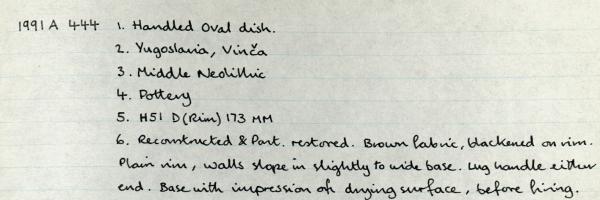 1991 A 444 1. Handled Oval dish.
2. Yugoslavia, Vinča
3. Middle Neolithic
4. Pottery
5. H51 D(Rim) 173 MM
6. Reconstructed & Part. restored. Brown fabric, blackened on rim.
Plain rim, walls slope in slightly to wide base. Lug handle either
end. Base with impression of drying surface, before firing.